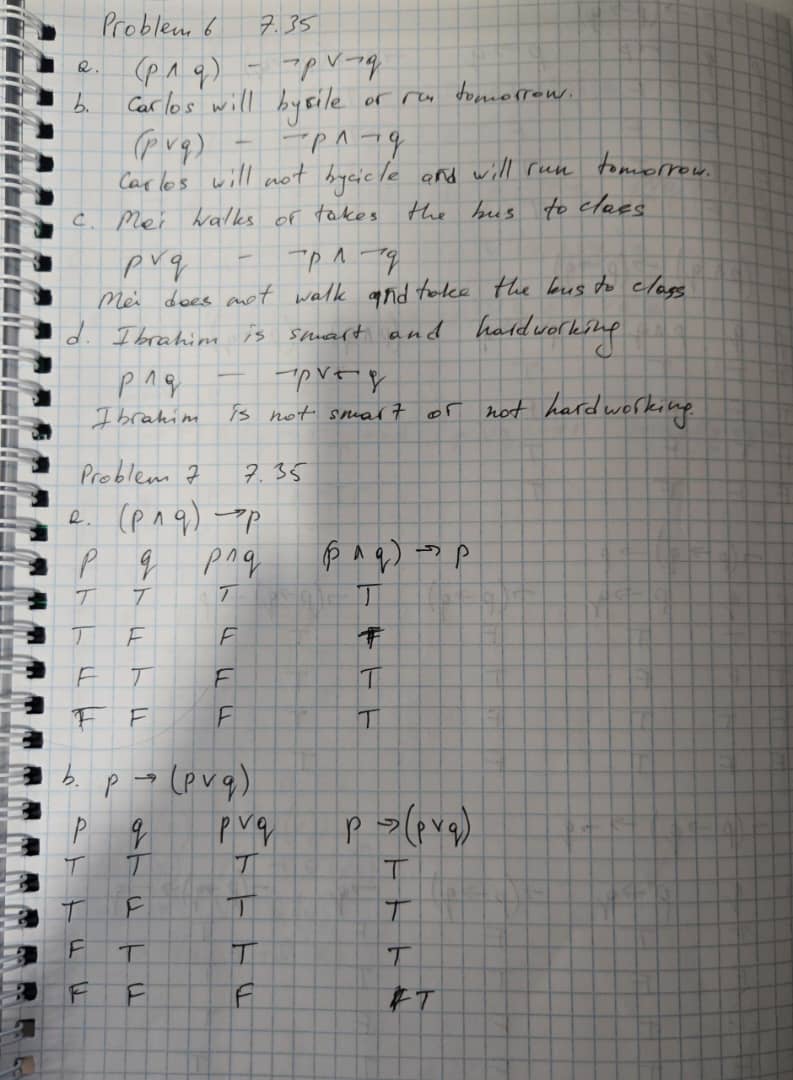 Problem 6 7.35
a. (p ∧ q) - ¬p ∨ ¬q
b. Carlos will bycile or run tomorrow.
(p ∨ q) - ¬p ∧ ¬q
Carlos will not bycicle and will run tomorrow.
c. Mei walks or takes the bus to class
p ∨ q - ¬p ∧ ¬q
Mei does not walk and take the bus to class
d. Ibrahim is smart and hardworking
p ∧ q - ¬p ∨ ¬q
Ibrahim is not smart or not hardworking.
Problem 7 7.35
a. (p ∧ q) → p
p q p ∧ q (p ∧ q) → p
T T T T
T F F
F T F T
F F F T
b. p → (p ∨ q)
p q p ∨ q p → (p ∨ q)
T T T T
T F T T
F T T T
F F F T